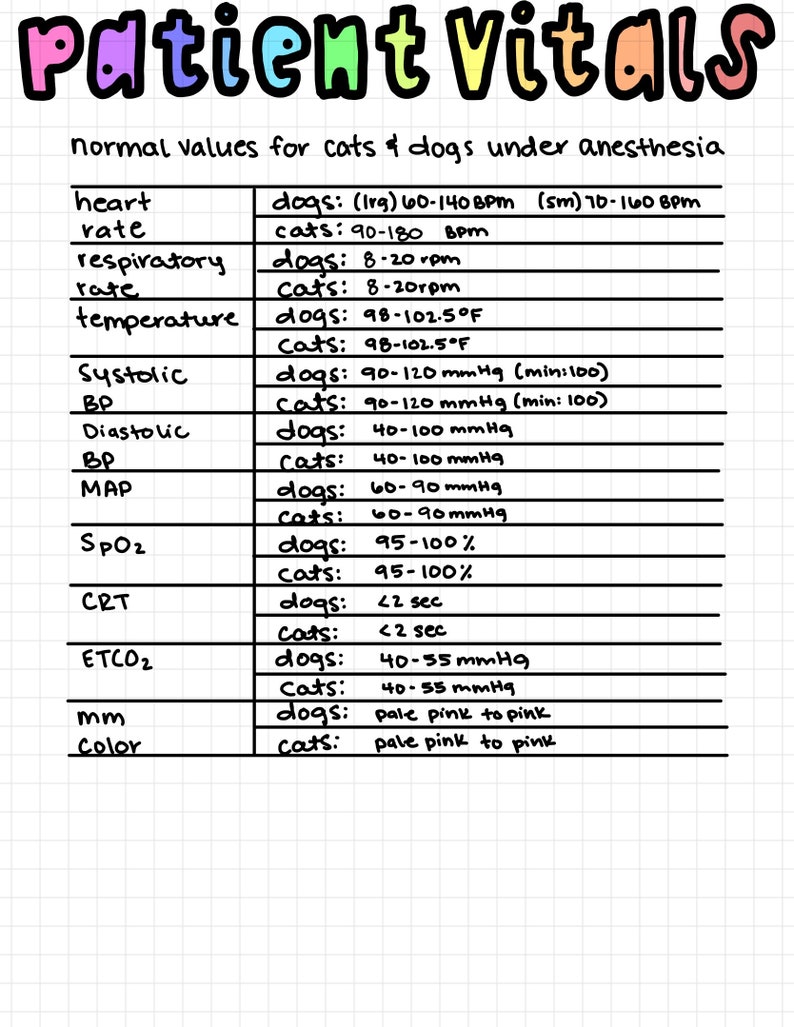 Patient Vitals
normal values for cats & dogs under anesthesia
heart rate
dogs: (lrg) 60-140 BPM (sm) 70-160 BPM
cats: 90-180 BPM
respiratory rate
dogs: 8-20 rpm
cats: 8-20rpm
temperature
dogs: 98-102.5°F
cats: 98-102.5°F
Systolic BP
dogs: 90-120 mmHg (min:100)
cats: 90-120 mmHg (min: 100)
Diastolic BP
dogs: 40-100 mmHg
cats: 40-100 mmHg
MAP
dogs: 60-90 mmHg
cats: 60-90 mmHg
SpO2
dogs: 95-100%
cats: 95-100%
CRT
dogs: <2 sec
cats: <2 sec
ETCO2
dogs: 40-55 mmHg
cats: 40-55 mmHg
mm color
dogs: pale pink to pink
cats: pale pink to pink